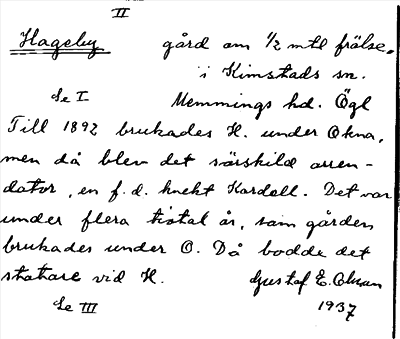 II
Hageby gård om 1/2 mtl frälse,
i Kimstads sn.
Se I Memmings hd. Ögl
Till 1892 brukades H. under Okna,
men då blev det särskild arren-
dator, en f. d. knekt Kardell. Det var
under flera tiotal år, som gården
brukades under O. Då bodde det
statare vid H. Gustaf E. Olsson
Se III 1937